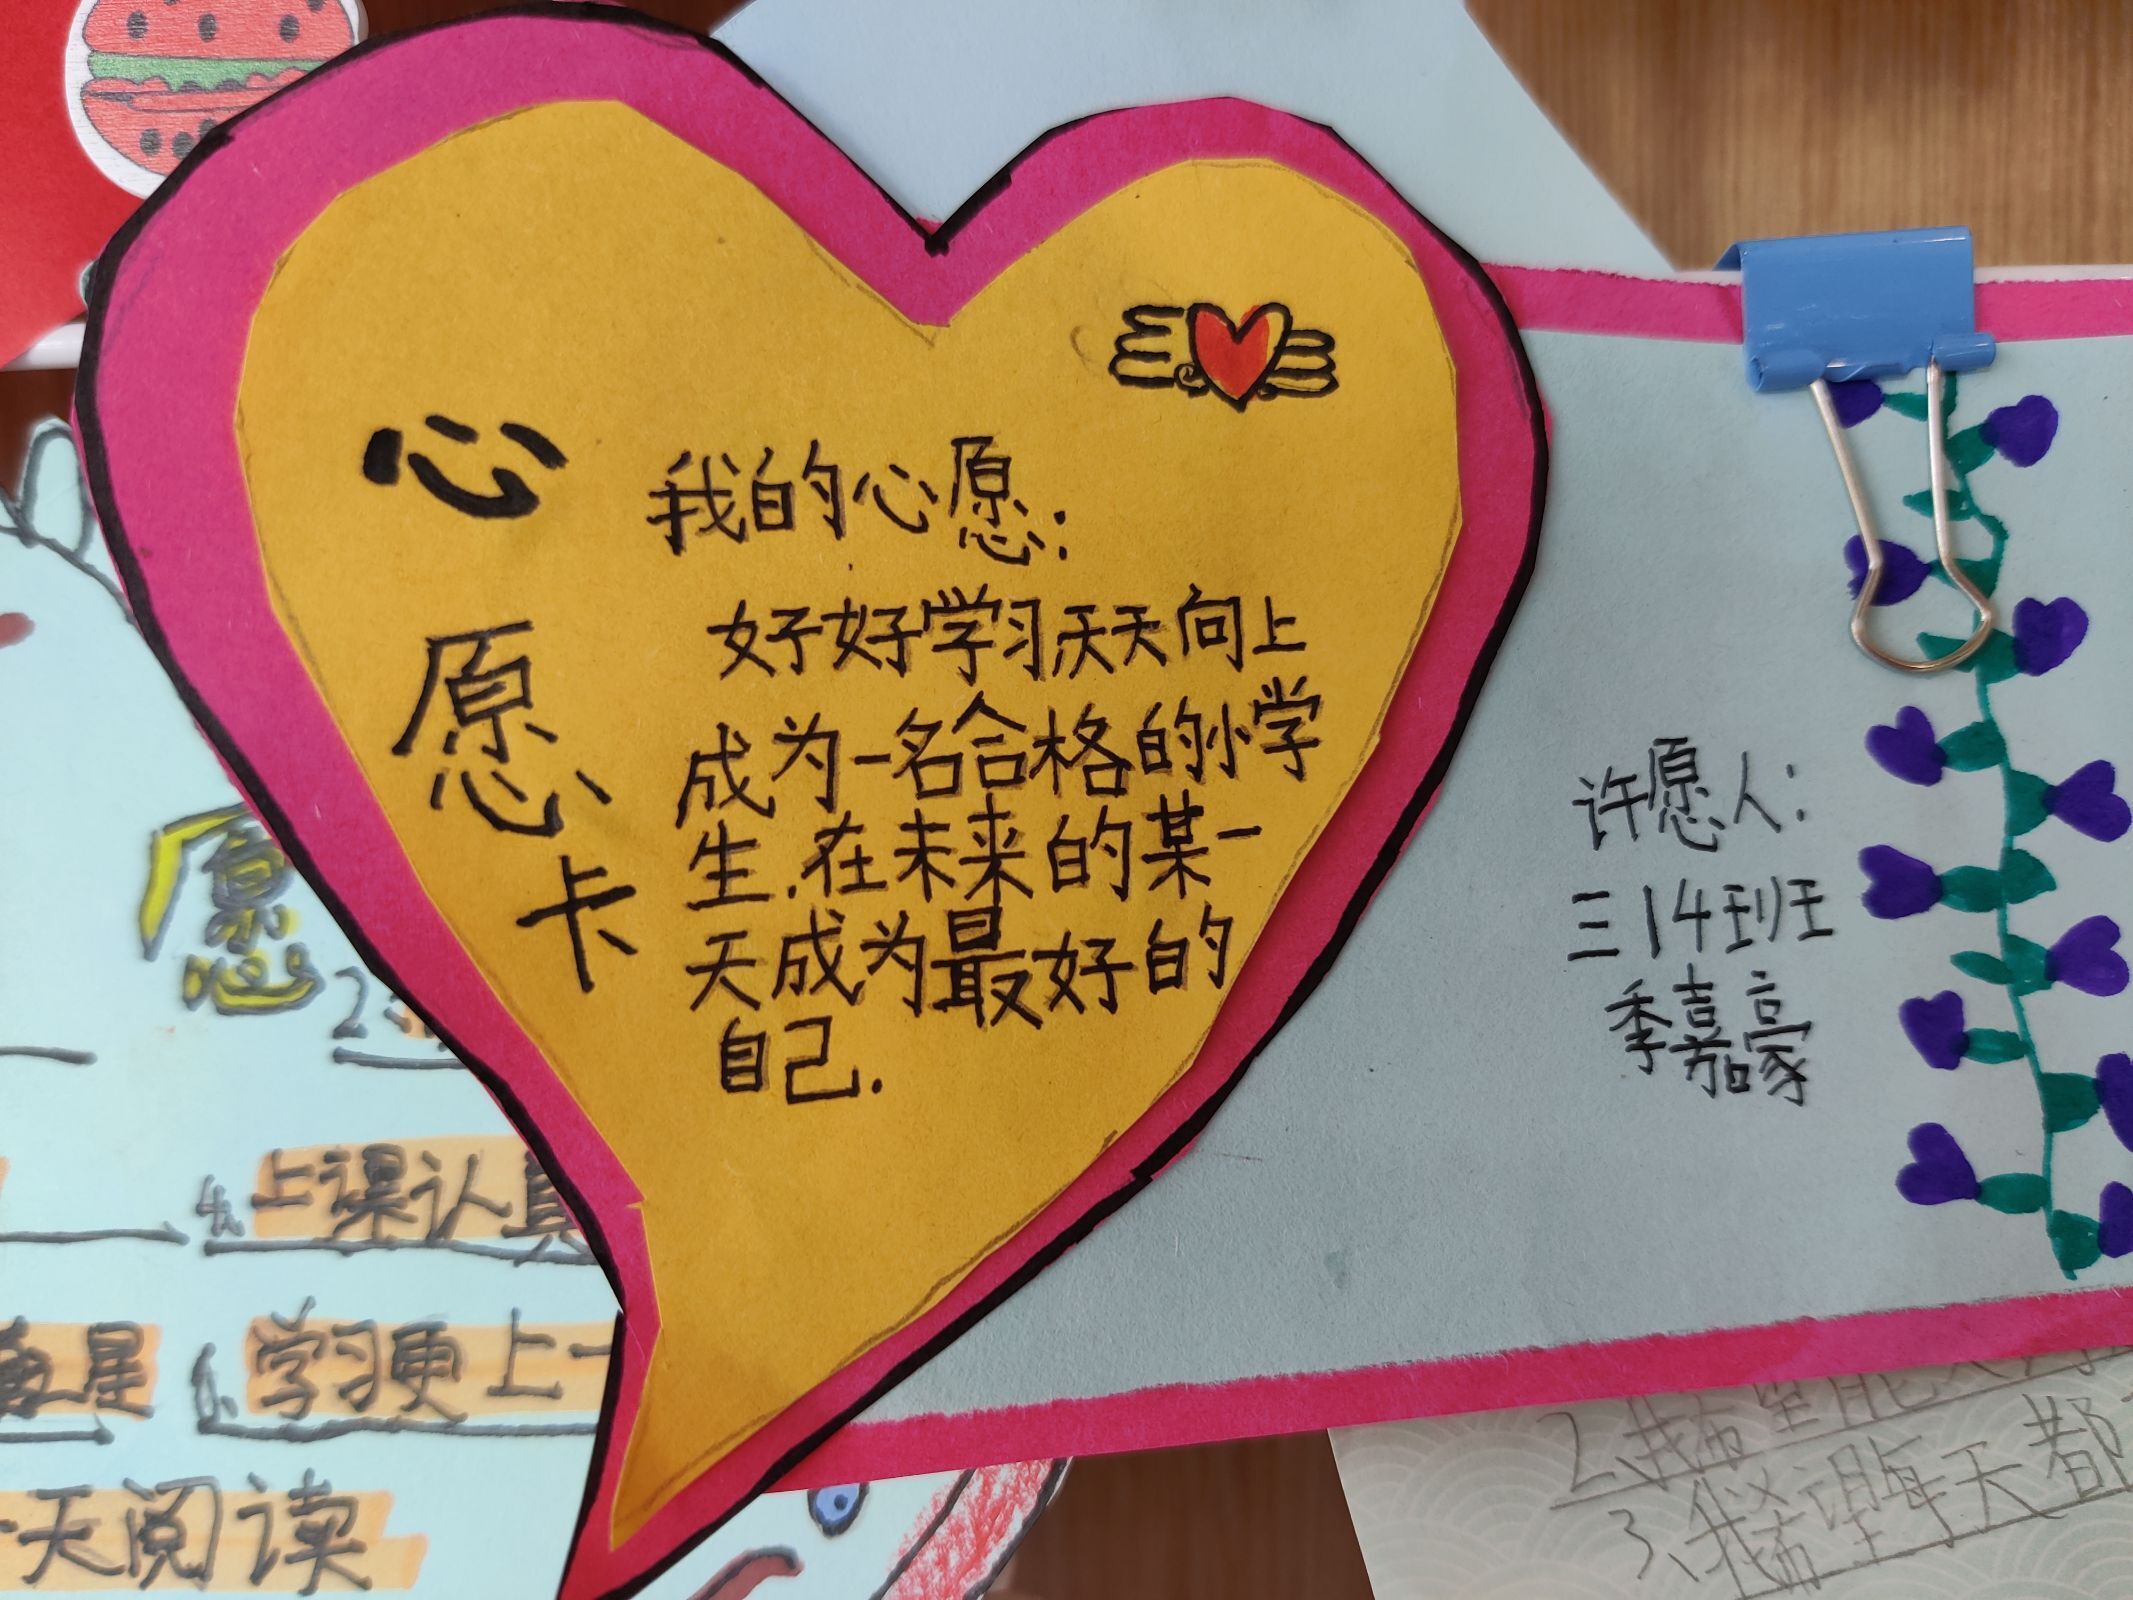 心愿卡
我的心愿:
好好学习,天天向上
成为一名合格的小学
生,在未来的某一
天成为最好的
自己.
许愿人:
三14班
季嘉豪
愿
2.
4.上课认真
学习更上一
天阅读
3、我希望每天都